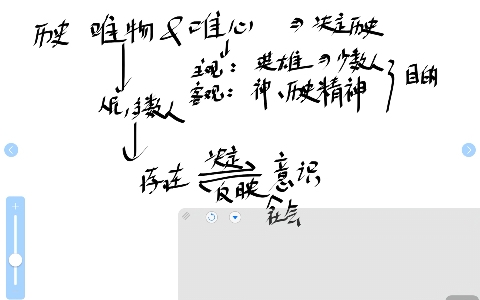 历史 唯物 & 唯心 ⇒ 决定历史
主观：英雄 ⇒ 少数人
客观：神、历史精神 } 目的
人民，多数人
存在 决定 反映 意识
社会